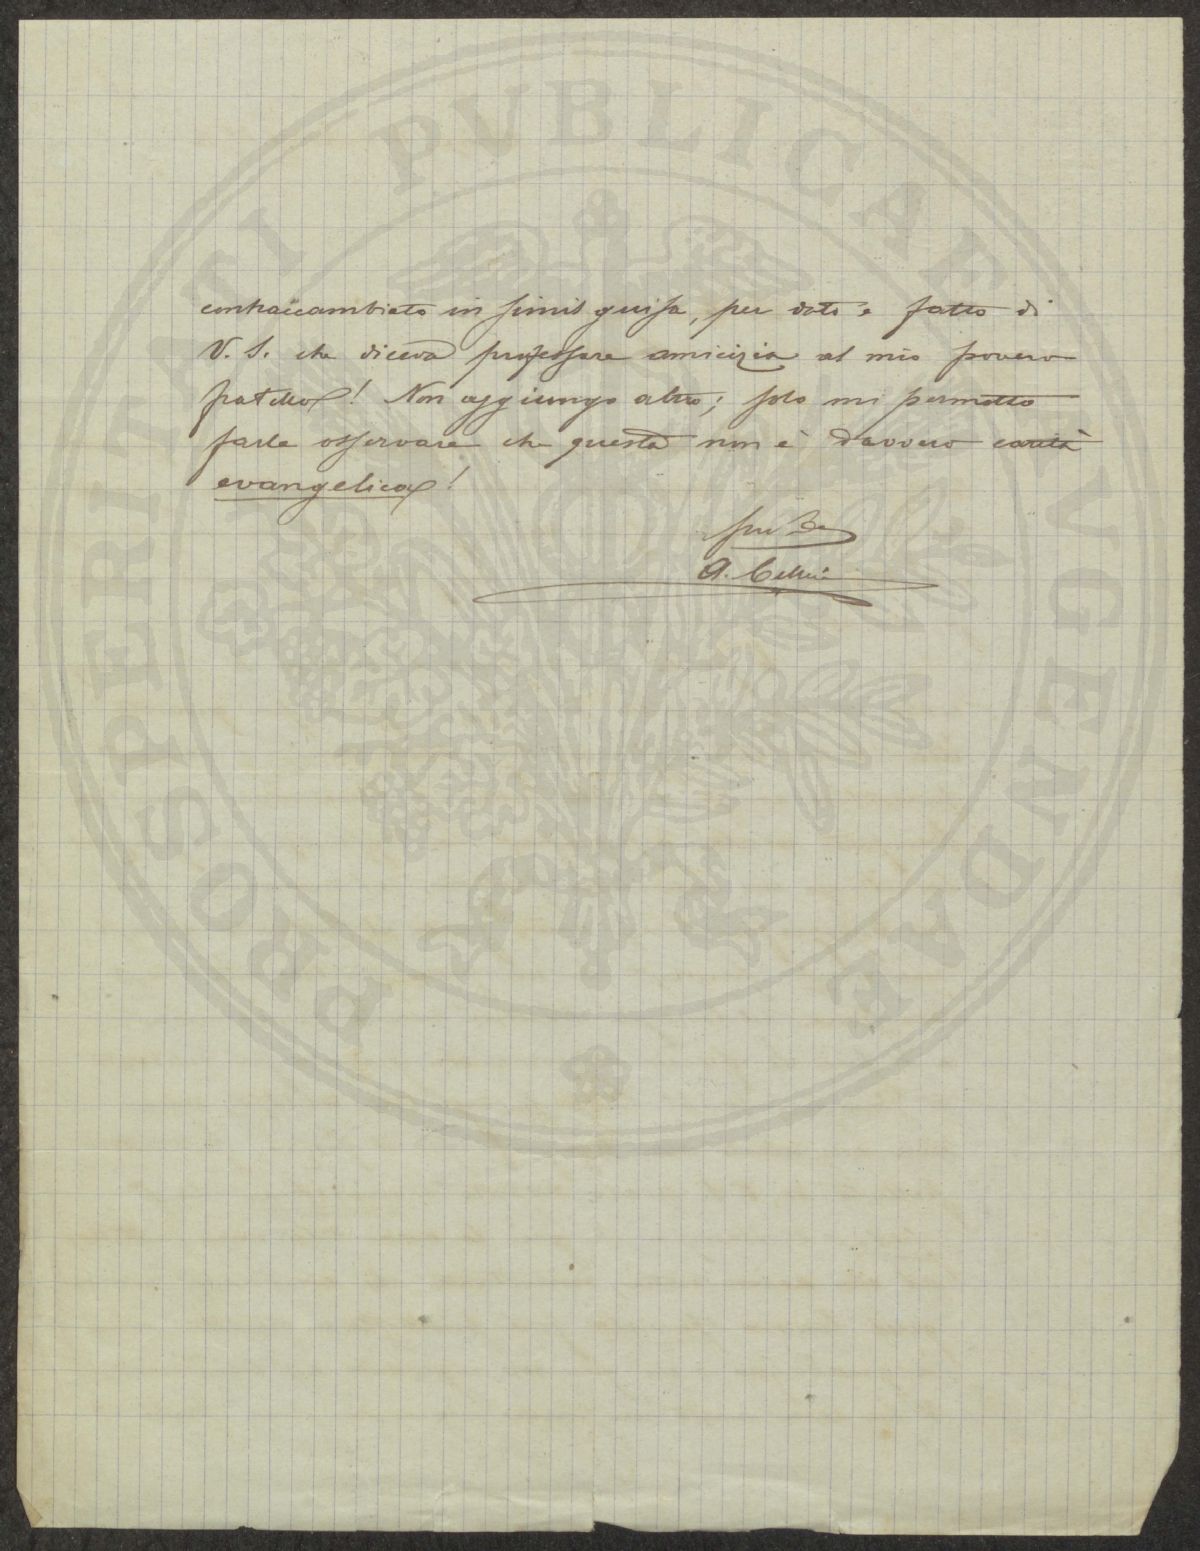 contraccambiato in simil guisa, per dato e fatto di
V. S. che diceva professare amicizia al mio povero
fratello! Non aggiungo altro; solo mi permetto
farle osservare che questa non è davvero carità
evangelica!
A. Cellini
PROSPERITATI PUBLICAE AUGENDAE